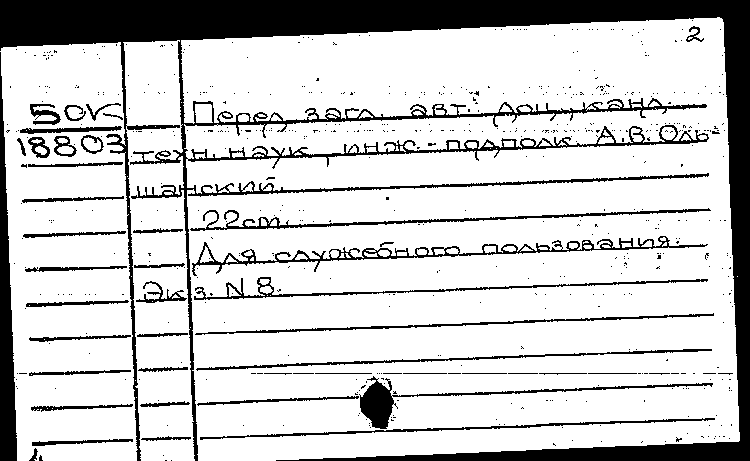 2
50К Перед загл. авт.: доц., канд.
18803 техн. наук, инж.-подполк. А.В. Оль-
шанский.
22 cm.
Для служебного пользования.
Экз. N 8.